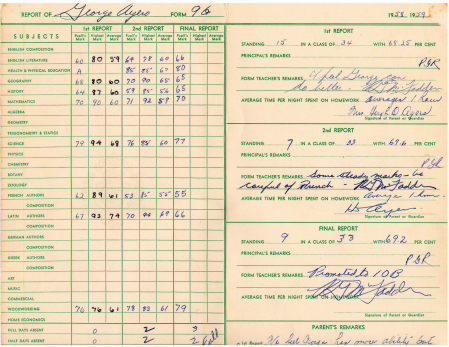 REPORT OF George Ayers FORM 9G 1958-1959
SUBJECTS 1st REPORT 2nd REPORT FINAL REPORT
Pupil's Mark Highest Mark Average Mark Pupil's Mark Highest Mark Average Mark Pupil's Mark
ENGLISH COMPOSITION
ENGLISH LITERATURE 60 80 59 64 78 60 66
HEALTH & PHYSICAL EDUCATION A 80
GEOGRAPHY 68 80 60 70 90 65 65
HISTORY 64 87 60 59 85 56 65
MATHEMATICS 70 90 60 71 92 58 70
ALGEBRA
GEOMETRY
TRIGONOMETRY & STATICS
SCIENCE 79 94 68 76 85 60 77
PHYSICS
CHEMISTRY
BOTANY
ZOOLOGY
FRENCH AUTHORS 62 89 61 53 85 55
COMPOSITION
LATIN AUTHORS 67 93 74 70 66
COMPOSITION
GERMAN AUTHORS
COMPOSITION
GREEK AUTHORS
COMPOSITION
ART
MUSIC
COMMERCIAL
WOODWORKING 76 76 61 78 83 61 79
HOME ECONOMICS
FULL DAYS ABSENT 0 2 3
HALF DAYS ABSENT 0 2 2
1st REPORT
STANDING 15 IN A CLASS OF 34 WITH 68.25 PER CENT
PRINCIPAL'S REMARKS
FORM TEACHER'S REMARKS I feel George can
do better -
AVERAGE TIME PER NIGHT SPENT ON HOMEWORK average 1 hour
Mrs. Hugh D Ayers
Signature of Parent or Guardian
2nd REPORT
STANDING 7 IN A CLASS OF 33 WITH 67.6 PER CENT
PRINCIPAL'S REMARKS
FORM TEACHER'S REMARKS Some steady marks - be
careful of French -
AVERAGE TIME PER NIGHT SPENT ON HOMEWORK Average 1 hr.
Signature of Parent or Guardian
FINAL REPORT
STANDING 9 IN A CLASS OF 33 WITH 69.2 PER CENT
PRINCIPAL'S REMARKS
FORM TEACHER'S REMARKS Promoted to 10B
AVERAGE TIME PER NIGHT SPENT ON HOMEWORK
Signature of Parent or Guardian
PARENT'S REMARKS
1st Report We feel George has more ability but